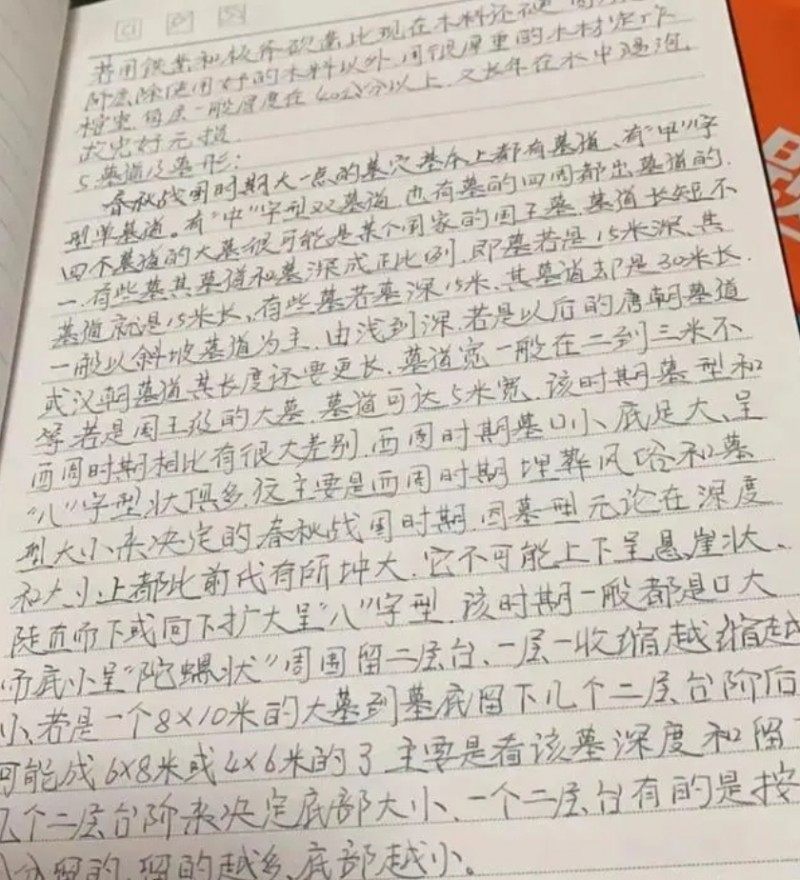 若用铁業和板券砍造比现在木料还硬
除使用好的木料以外,用很厚重的木材
椁室 每层一般厚度在 公分以上.又长年在水中
故完好元损.
5.墓道及墓形:
春秋战国时期大一点的墓穴基本上都有墓道、有"甲"字
型单墓道。有"中"字型双墓道.也有墓的四周都出墓道的.
四个墓道的大墓很可能是某个国家的国王墓.墓道长短不
一.有些墓其墓道和墓深成正比例.即墓若是15米深、其
墓道就是15米长、有些墓若墓深15米.其墓道却是30米长.
一般以斜坡墓道为主.由浅到深.若是以后的唐朝墓道
或汉朝墓道其长度还要更长.墓道宽一般在二到三米不
等若是国王级的大墓.墓道可达5米宽.该时期墓型和
西周时期相比有很大差别.西周时期墓口小、底足大、呈
"八"字型状俱多.这主要是西周时期埋葬风俗和墓
型大小来决定的春秋战国时期.因墓型元论在深度
和大小上都比前代有所增大.它不可能上下呈悬崖状、
陡直而下或向下扩大呈"八"字型.该时期一般都是口大
而底小呈"陀螺状"周围留二层台、一层一收缩越缩越
小、若是一个8×10米的大墓到墓底留下几个二层台阶后
可能成6×8米或4×6米的了 主要是看该墓深度和留
几个二层台阶来决定底部大小、一个二层台有的是按
留的.留的越多、底部越小。